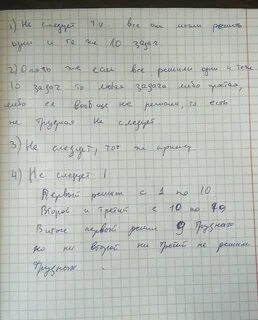 1) Не следует т.к. все они могли решить
одни и те же 10 задач
2) Опять же если все решили одни и те же
10 задач то любая задача либо простая,
либо её вообще не решали, то есть
не трудная Не следует
3) Не следует, тот же пример
4) Не следует!
Первый решил с 1 по 10
Второй и третий с 10 по
В итоге первый решил 9 трудных
но ни второй ни третий не решили
трудных